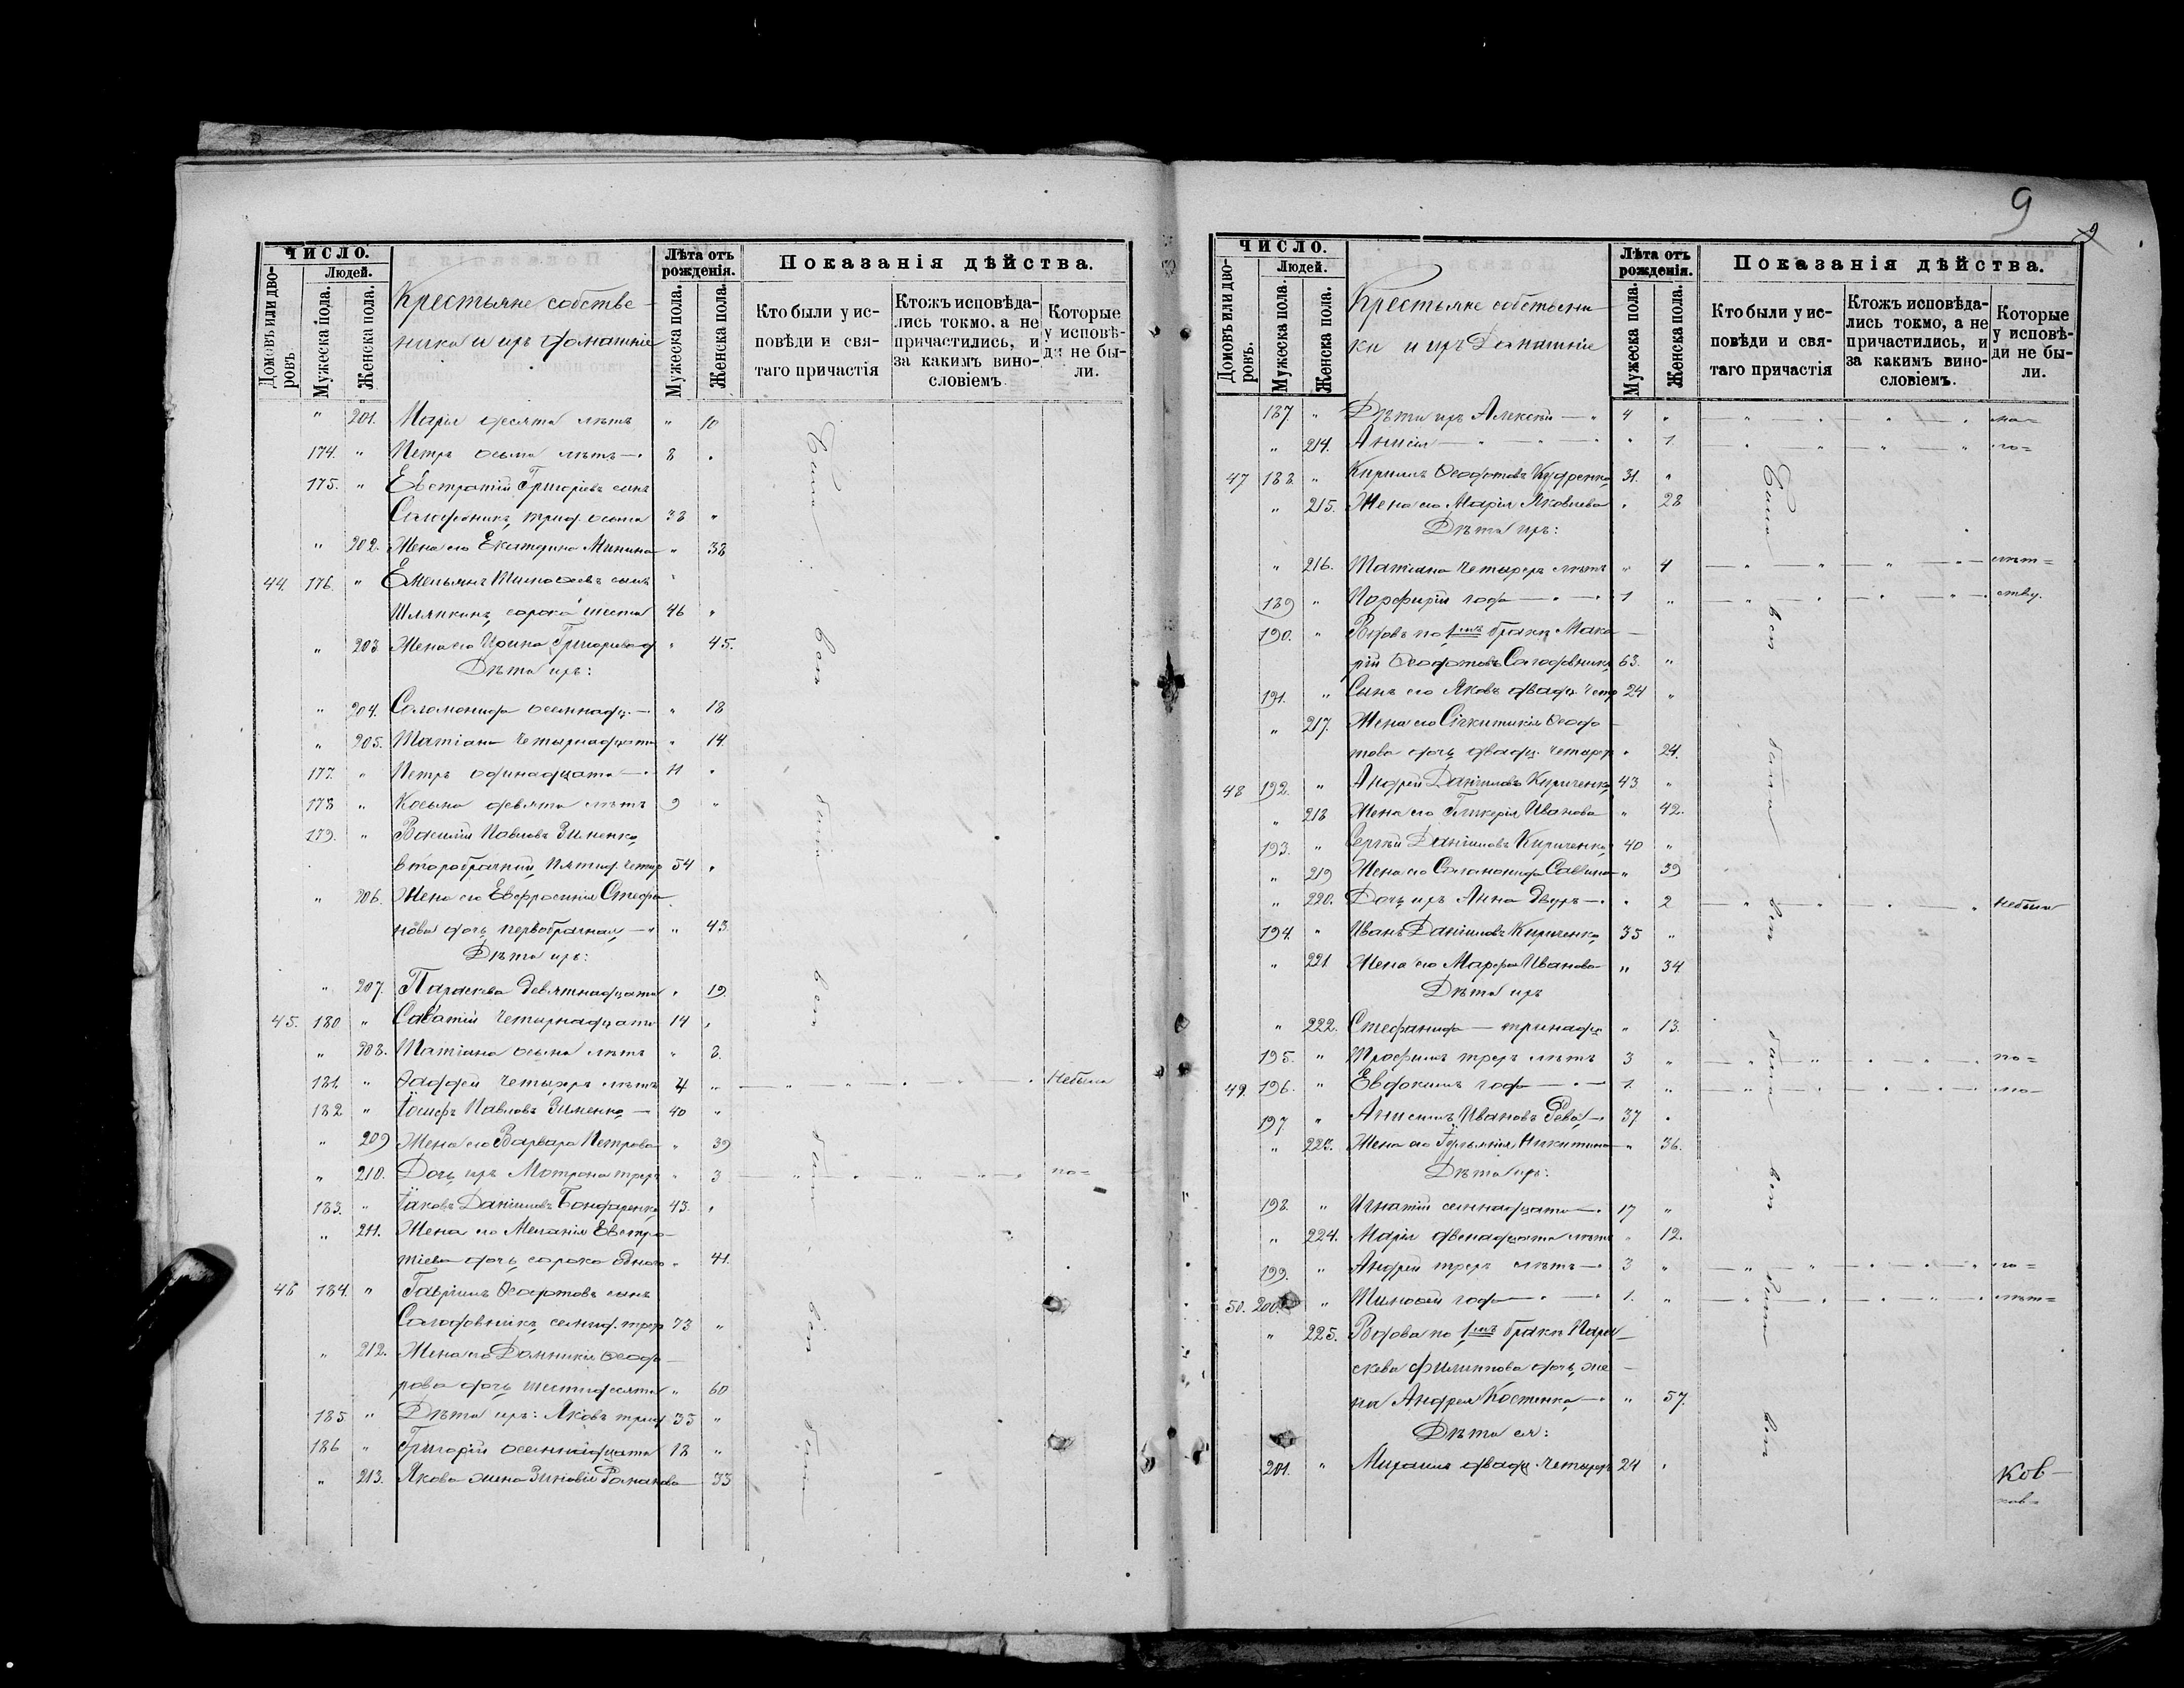 ЧИСЛО.
Домовъ или дворовъ
Людей.
Мужеска пола.
Женска пола.
Крестьяне собстве-
ника и ихъ домашніе
Лѣта отъ рожденія.
Мужеска пола.
Женска пола.
Показанія дѣйства.
Кто были у ис-
повѣди и свя-
таго причастія
Ктожъ исповѣда-
лись токмо, а не
причастились, и
за какимъ вино-
словіемъ.
Которые
у исповѣ-
ди не бы-
ли.
" 201. Марія десяти лѣтъ " 10
174. " Петръ осьми лѣтъ 8 "
175. " Евстратій Григоріевъ сынъ
Сагодовникъ, трид. осьми 38 "
" 202. Жена его Екатерина Минина " 38
44. 176. " Емельянъ Тимоѳеевъ сынъ "
Шляпкинъ, сорока шести 46 "
" 203 Жена его Ирина Григорьева д " 45.
Дѣти ихъ:
" 204. Саломонида осемнадц. — " 18
" 205. Татіана четырнадцати " 14.
177. " Петръ одинадцати — 11 "
178 " Косьма девяти лѣтъ 9 "
179. " Василій Павловъ Зиненко,
второбрачный, пятид. четыр 54 "
" 206. Жена его Евфросинія Стефа
нова дочь первобрачная, — " 43.
Дѣти ихъ:
" 207. Параскева девятнадцати " 19.
45. 180 " Саватій четырнадцати 14 "
" 208. Татіана осьми лѣтъ " 8.
181. " Фаддей четырехъ лѣтъ 4 " Небыли
182 " Іосифъ Павловъ Зиненко, — 40 "
" 209 Жена его Варвара Петрова " 39
" 210. Дочь ихъ Матрона трехъ " 3 по=
183. " Іаковъ Даніиловъ Бондаренко, 43. "
" 211. Жена его Меланія Евстра-
тіева дочь, сорока одного " 41.
46 184. " Гавріилъ Ѳеодотовъ сынъ
Сагодовникъ, семид. трехъ 73 "
" 212. Жена его Домникія Ѳеодо-
рова дочь, шестидесяти " 60
185. " Дѣти ихъ: Яковъ трид 35 "
186 " Григорій осемнадцати 18 "
" 213. Якова жена Зиновія Романова — 33
Сіи
всѣ
были
всѣ
были
всѣ
были
9
ЧИСЛО.
Домовъ или дворовъ.
Людей.
Мужеска пола.
Женска пола.
Крестьяне собственни
ки и ихъ Домашніе
Лѣта отъ рожденія.
Мужеска пола.
Женска пола.
Показанія дѣйства.
Кто были у ис-
повѣди и свя-
таго причастія
Ктожъ исповѣда-
лись токмо, а не
причастились, и
за какимъ вино-
словіемъ.
Которые
у исповѣ-
ди не бы-
ли.
187. " Дѣти ихъ Алексій — " 4 "
" 214. Анисія — " — " — " 1.
47 188. " Кириллъ Ѳеодотовъ Кудренко, 31. "
" 215. Жена его Марія Яковлева " 28
Дѣти ихъ:
" 216. Татіана четырехъ лѣтъ " 4 лѣт=
189 " Порфирій года — " — 1 " ству.
190. " Вдовъ по 1мъ бракѣ Мака-
рій Ѳеодотовъ Сагодовникъ, 63. "
191. " Сынъ его Яковъ двадц. четр 24 "
" 217. Жена его Сѵгклитикія Ѳеодо-
това дочь двадц. четырех " 24.
48 192. " Андрей Даніиловъ Кириченко, 43 "
" 218 Жена его Гликерія Иванова " 42.
193. " Сергѣй Даніиловъ Кириченко, 40 "
" 219 Жена его Саломонида Савина " 39
" 220. Дочь ихъ Анна двухъ — " 2 Небыли
194. " Иванъ Даніиловъ Кириченко, 35 "
" 221 Жена его Марѳа Иванова " 34
Дѣти ихъ
" 222. Стефанида — тринадц " 13.
195. " Трофимъ трехъ лѣтъ 3 " по=
49. 196. " Евдокимъ года — " — 1. "
197. " Анисимъ Ивановъ Рева, — 37 "
" 223. Жена его Іуліанія Никитина " 36.
Дѣти ихъ:
198. " Игнатій семнадцати — 17 "
" 224. Марія двенадцати лѣтъ " 12.
199. " Андрей трехъ лѣтъ — 3 "
50. 200. " Тимоѳей года — " — 1. " лѣт=
" 225. Вдова по 1мъ бракѣ Пара-
скева Филиппова дочь, же-
на Андрея Костенка, — " 57.
Дѣти ея:
201. " Михаилъ двадц. четырехъ 24 "
Сіи
всѣ
были
всѣ
были
всѣ
были
всѣ